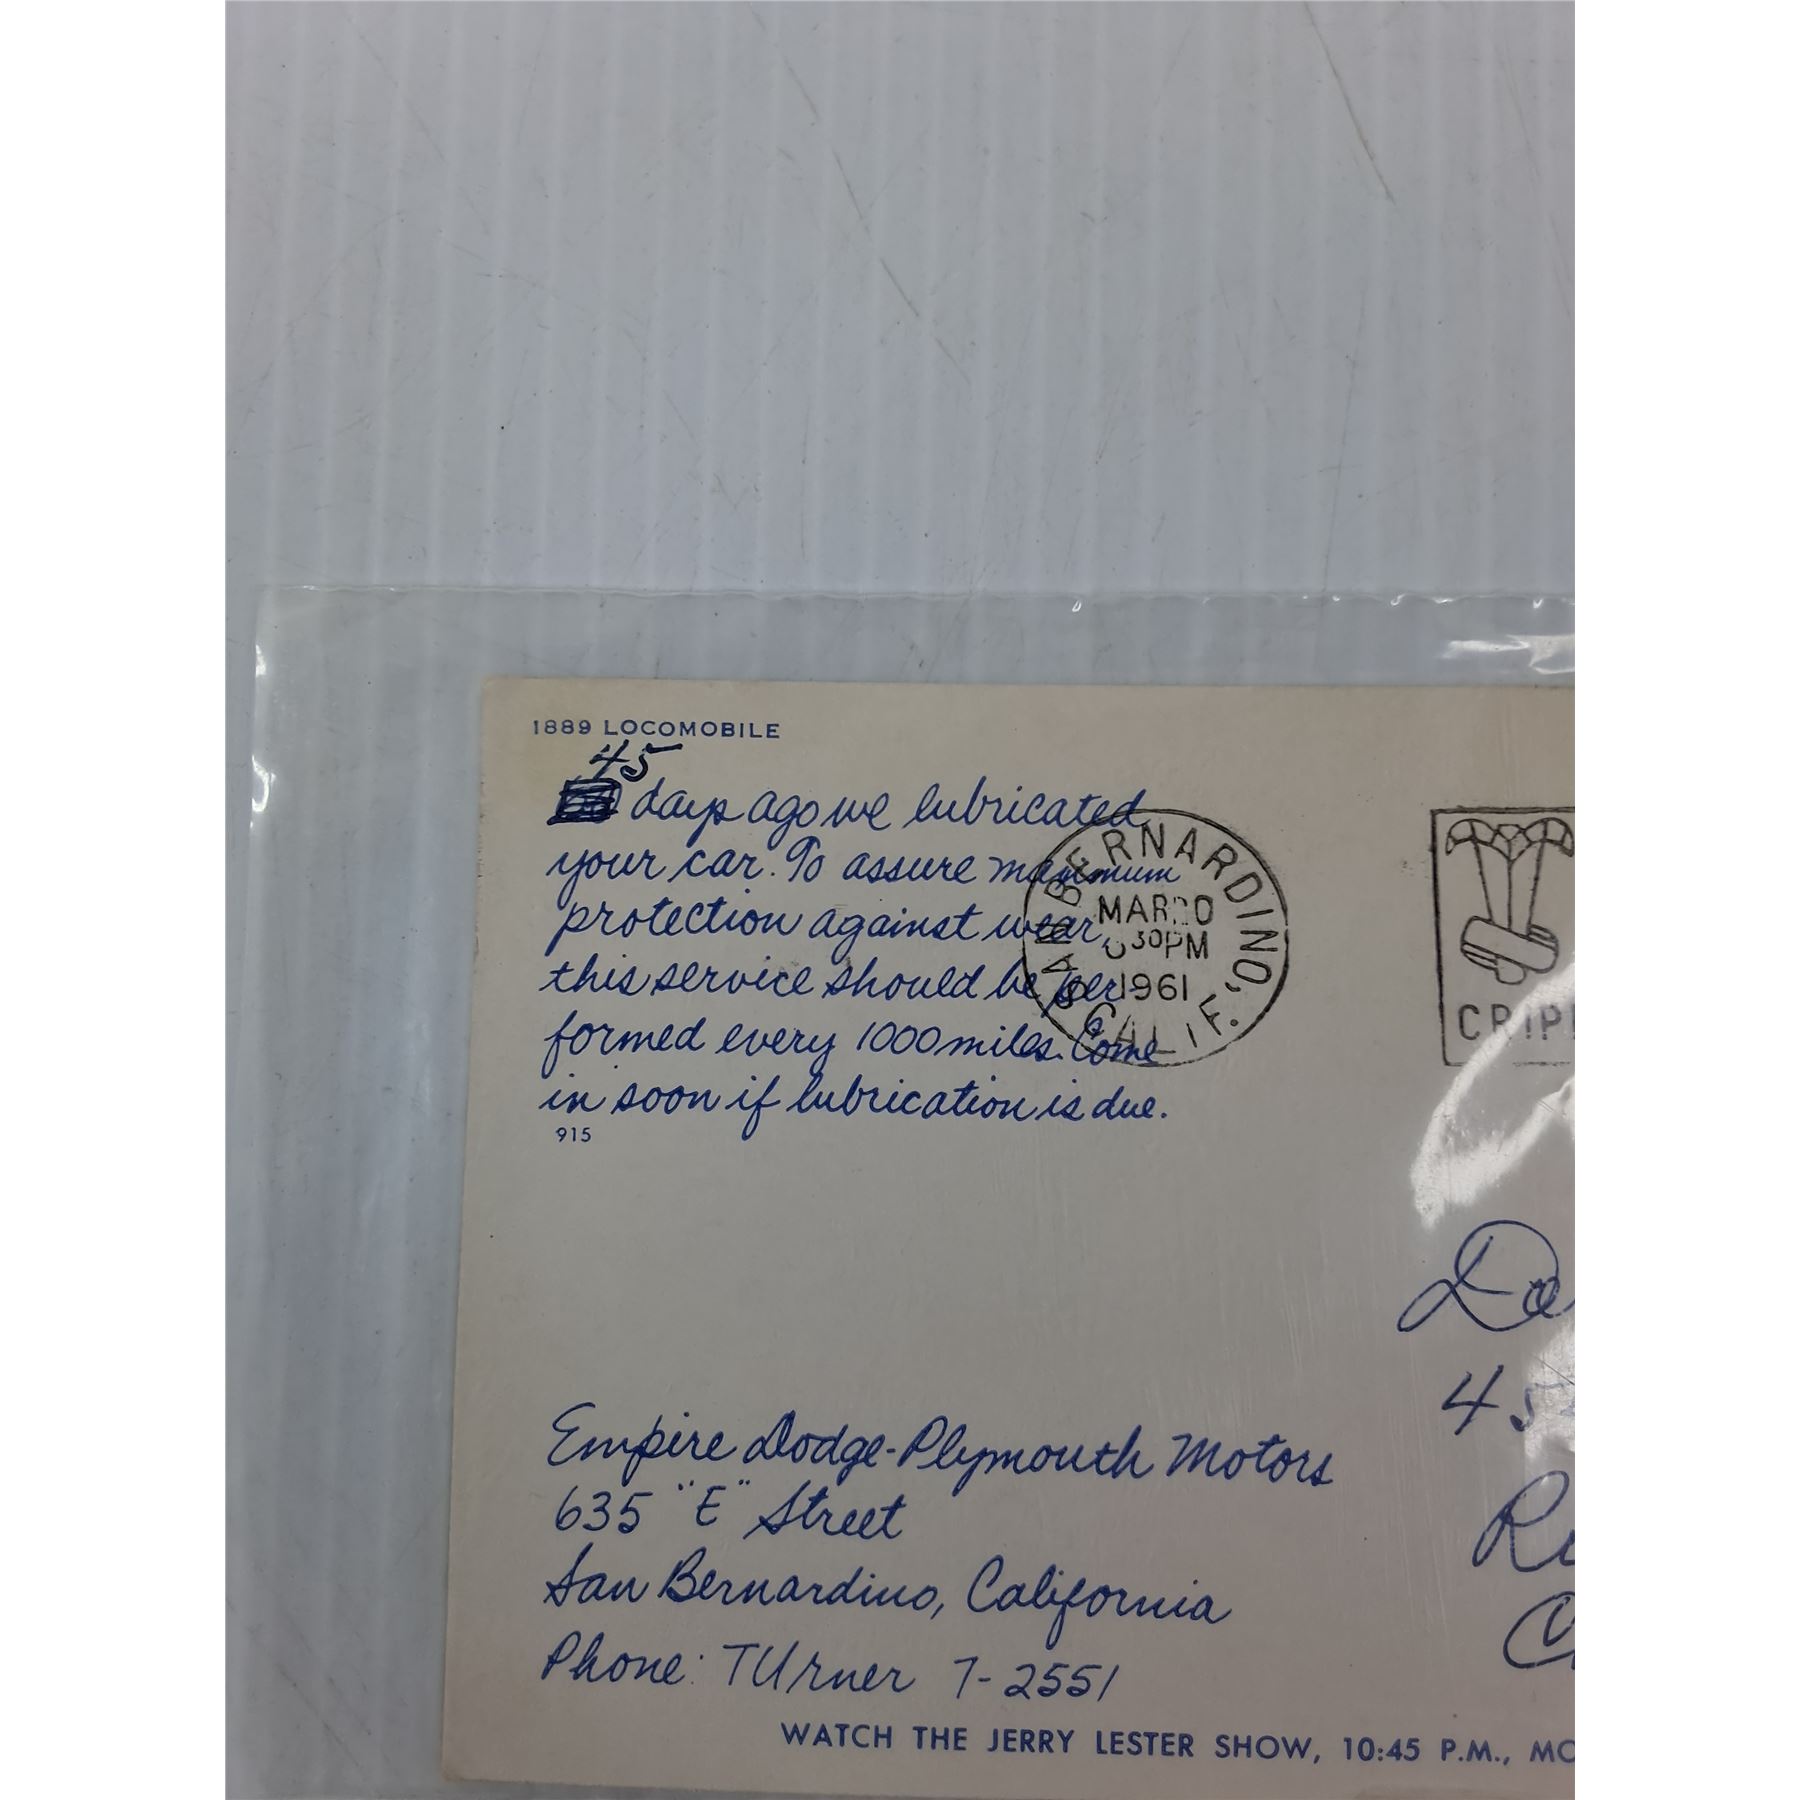 1889 LOCOMOBILE
45
days ago we lubricated
your car. To assure maximum
protection against wear,
this service should be per-
formed every 1000 miles. Come
in soon if lubrication is due.
915
SAN BERNARDINO, CALIF.
MAR 20
30 PM
1961
CRIPP
Da
45
Empire Dodge-Plymouth Motors
635 "E" Street
San Bernardino, California
Phone: TUrner 7-2551
WATCH THE JERRY LESTER SHOW, 10:45 P.M., MO